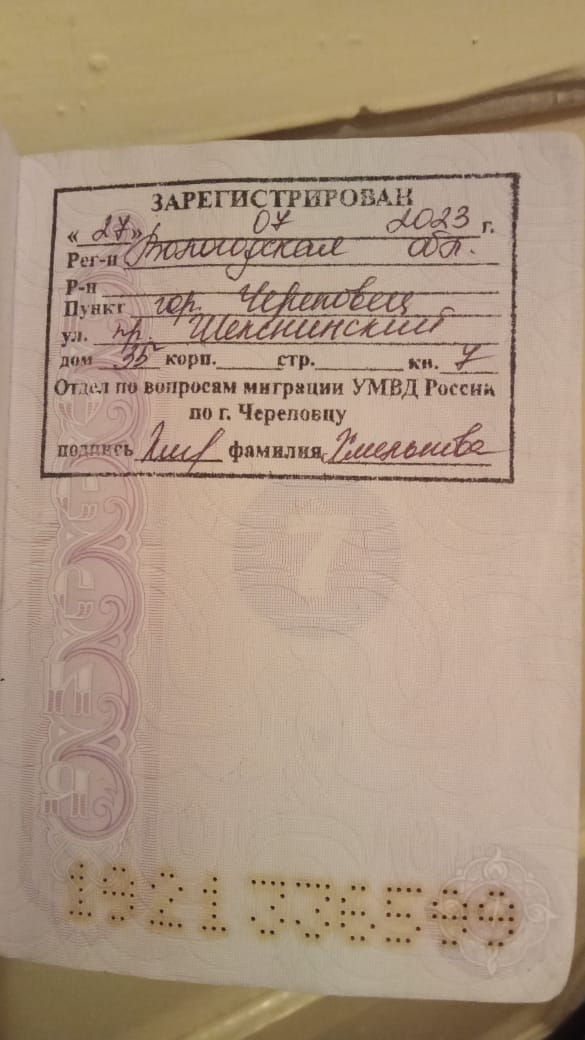 ЗАРЕГИСТРИРОВАН
« 27 » 07 2023 г.
Рег-н Вологодская обл.
Р-н
Пункт гор. Череповец
ул. пр. Шекснинский
дом 35 корп. стр. кв. 7
Отдел по вопросам миграции УМВД России
по г. Череповцу
подпись фамилия Хмельнова
7
1921 336599